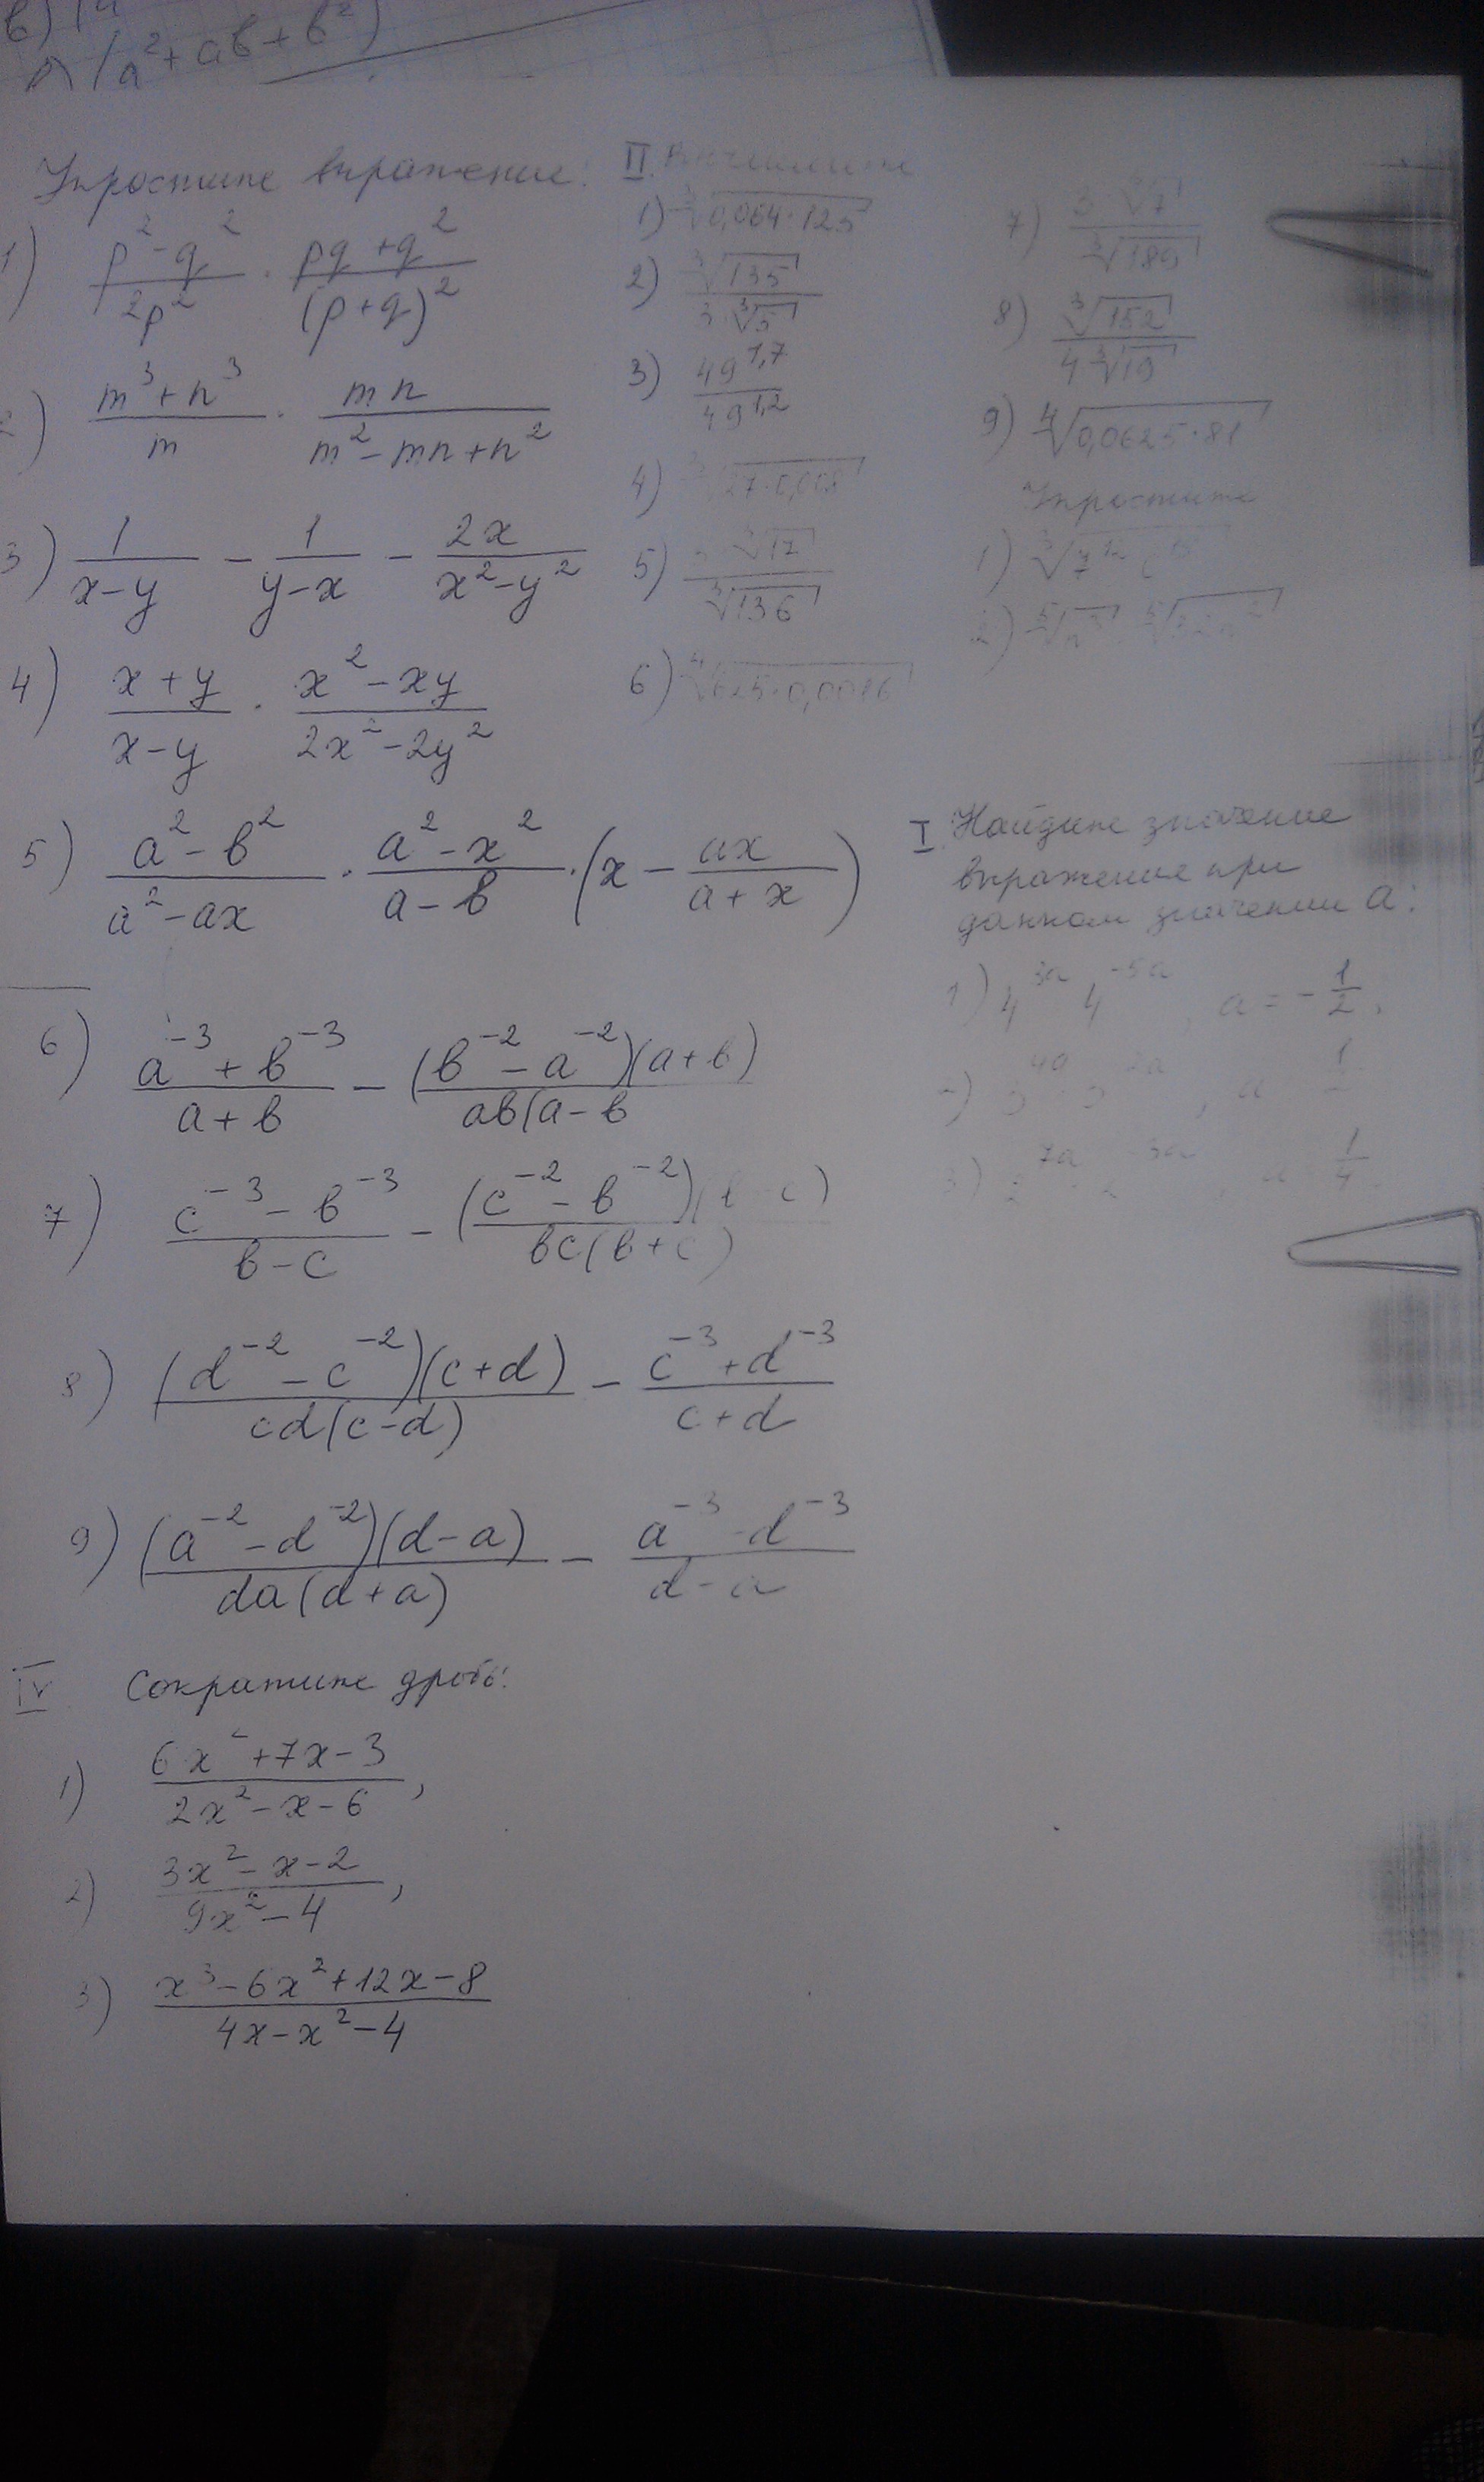 (a²+ab+b²)
Упростите выражение:
1) (p²-q²)/(2p²) · (pq+q²)/(p+q)²
2) (m³+n³)/m · mn/(m²-mn+n²)
3) 1/(x-y) - 1/(y-x) - 2x/(x²-y²)
4) (x+y)/(x-y) · (x²-xy)/(2x²-2y²)
5) (a²-b²)/(a²-ax) · (a²-x²)/(a-b) · (x - ax/(a+x))
6) (a⁻³+b⁻³)/(a+b) - (b⁻²-a⁻²)(a+b)/(ab(a-b
7) (c⁻³-b⁻³)/(b-c) - (c⁻²-b⁻²)( c)/(bc(b+c))
8) (d⁻²-c⁻²)(c+d)/(cd(c-d)) - (c⁻³+d⁻³)/(c+d)
9) (a⁻²-d⁻²)(d-a)/(da(d+a)) - (a⁻³-d⁻³)/(d-a)
IV Сократите дробь:
1) (6x²+7x-3)/(2x²-x-6),
2) (3x²-x-2)/(9x²-4),
3) (x³-6x²+12x-8)/(4x-x²-4)
II. Вычислите
1) ³√(0,064·125)
2) ³√135/(3 ³√5)
3) 49^1,7/49^1,2
4) ³√(27·0,008)
5) ³√17/³√136
6) ⁴√(625·0,0016)
7) 3 ³√7/³√189
8) ³√152/(4 ³√19)
9) ⁴√(0,0625·81)
Упростите
1)
2)
I. Найдите значение
выражение при
данном значении a:
1) 4^3a 4^-5a, a = -1/2,
3) 7a -3a, 1/4